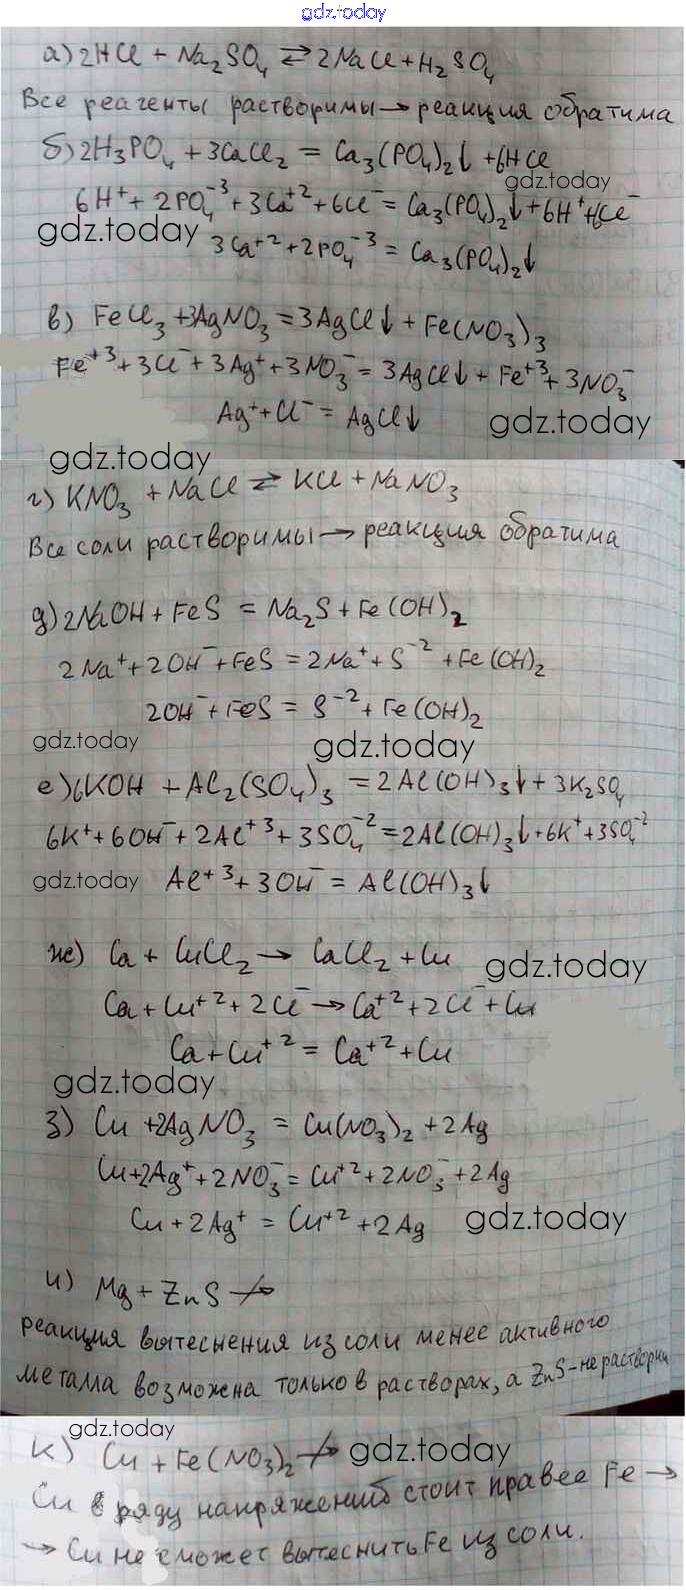 gdz.today
а) 2HCl + Na₂SO₄ ⇄ 2NaCl + H₂SO₄
Все реагенты растворимы → реакция обратима
б) 2H₃PO₄ + 3CaCl₂ = Ca₃(PO₄)₂↓ + 6HCl
gdz.today
6H⁺ + 2PO₄⁻³ + 3Ca⁺² + 6Cl⁻ = Ca₃(PO₄)₂↓ + 6H⁺ + 6Cl⁻
gdz.today
3Ca⁺² + 2PO₄⁻³ = Ca₃(PO₄)₂↓
в) FeCl₃ + 3AgNO₃ = 3AgCl↓ + Fe(NO₃)₃
Fe⁺³ + 3Cl⁻ + 3Ag⁺ + 3NO₃⁻ = 3AgCl↓ + Fe⁺³ + 3NO₃⁻
Ag⁺ + Cl⁻ = AgCl↓ gdz.today
gdz.today
г) KNO₃ + NaCl ⇄ KCl + NaNO₃
Все соли растворимы → реакция обратима
д) 2NaOH + FeS = Na₂S + Fe(OH)₂
2Na⁺ + 2OH⁻ + FeS = 2Na⁺ + S⁻² + Fe(OH)₂
2OH⁻ + FeS = S⁻² + Fe(OH)₂
gdz.today gdz.today
е) 6KOH + Al₂(SO₄)₃ = 2Al(OH)₃↓ + 3K₂SO₄
6K⁺ + 6OH⁻ + 2Al⁺³ + 3SO₄⁻² = 2Al(OH)₃↓ + 6K⁺ + 3SO₄⁻²
gdz.today Al⁺³ + 3OH⁻ = Al(OH)₃↓
ж) Ca + CuCl₂ → CaCl₂ + Cu gdz.today
Ca + Cu⁺² + 2Cl⁻ → Ca⁺² + 2Cl⁻ + Cu
Ca + Cu⁺² = Ca⁺² + Cu
gdz.today
з) Cu + 2AgNO₃ = Cu(NO₃)₂ + 2Ag
Cu + 2Ag⁺ + 2NO₃⁻ = Cu⁺² + 2NO₃⁻ + 2Ag
Cu + 2Ag⁺ = Cu⁺² + 2Ag gdz.today
и) Mg + ZnS ↛
реакция вытеснения из соли менее активного
металла возможна только в растворах, а ZnS - не растворим
gdz.today
к) Cu + Fe(NO₃)₂ ↛ gdz.today
Cu в ряду напряжений стоит правее Fe →
→ Cu не сможет вытеснить Fe из соли.